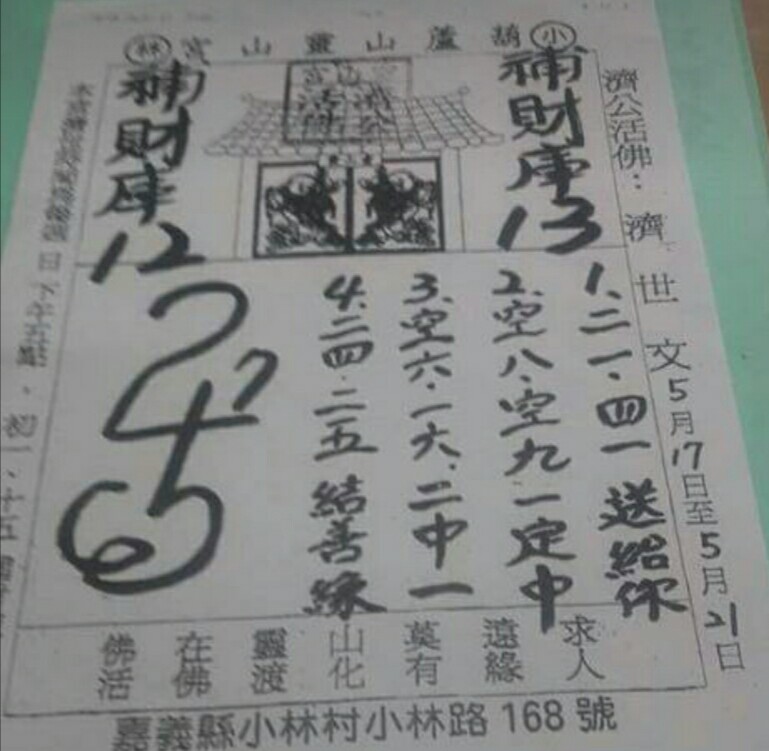 小葫蘆山靈山宮林
濟公活佛:濟世文5月17日至5月21日
補財庫13
濟公活佛
補財庫12
1、二一、四一送給你
2、空八、空九一定中
3、空六、一六、二中一
4、二四、二五結善緣
求人
遠緣
莫有
山化
靈渡
在佛
佛活
日下午五點、初一、十五
嘉義縣小林村小林路168號